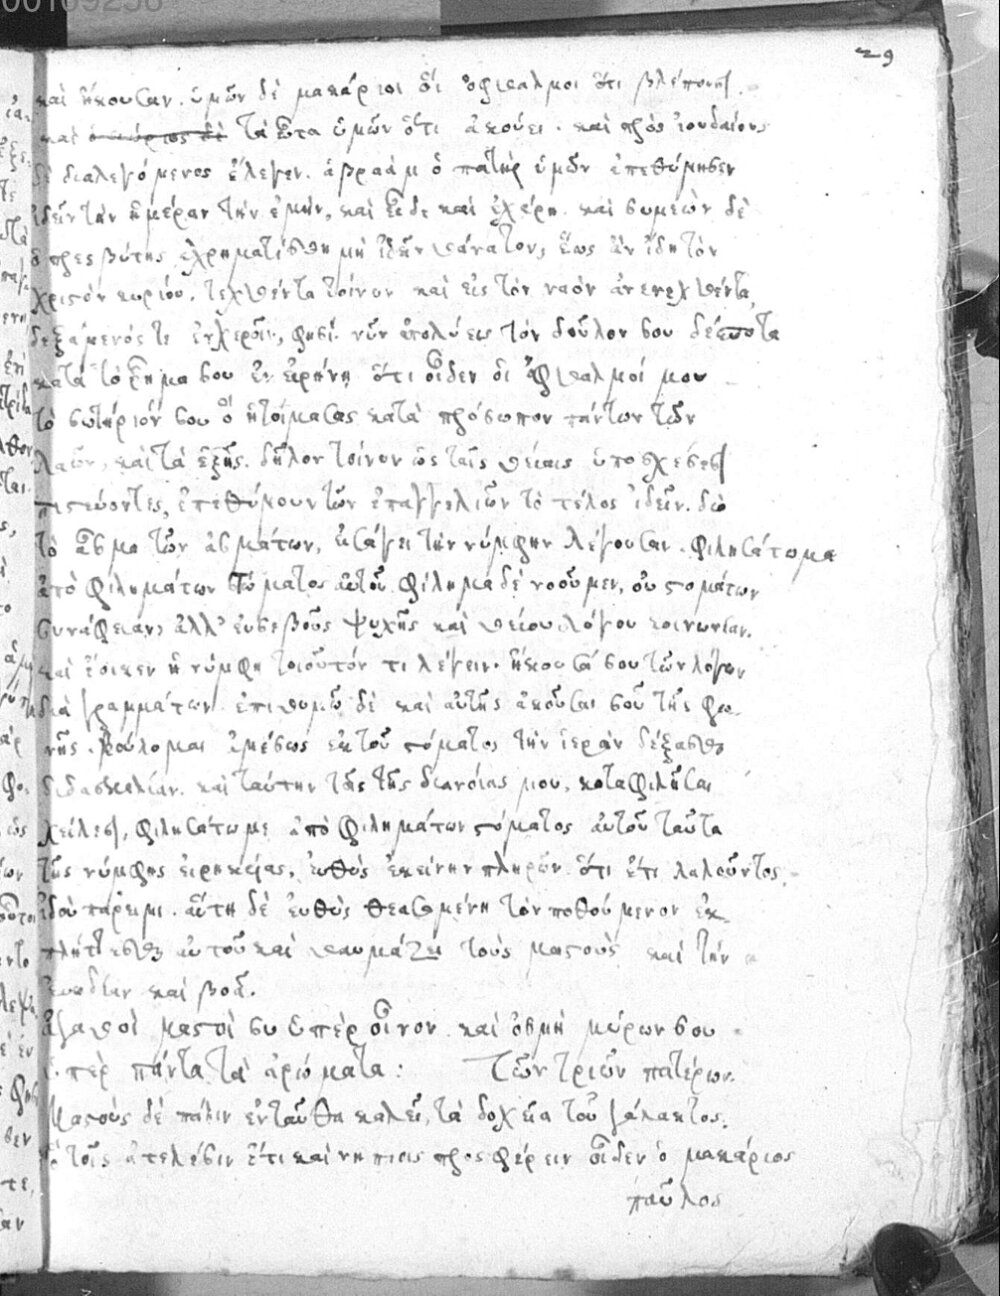 00109256
29
καὶ ἤκουσαν. ὑμῶν δὲ μακάριοι οἱ ὀφθαλμοι ὅτι βλέπουσι.
καὶ ὁ κύριος δὲ τὰ ὦτα ὑμῶν ὅτι ἀκούει. καὶ πρὸς ἰουδαίους
δὲ διαλεγόμενος ἔλεγεν. ἀβραὰμ ὁ πατὴρ ὑμῶν ἐπεθύμησεν
ἰδεῖν τὴν ἡμέραν τὴν ἐμὴν, καὶ εἶδε καὶ ἐχάρη. καὶ συμεὼν δὲ
ὁ πρεσβύτης ἐχρηματίσθη μὴ ἰδεῖν θάνατον, ἕως ἂν ἴδη τὸν
χριστὸν κυρίου. τεχθέντα τοίνυν καὶ εἰς τὸν ναὸν ἀνενεχθέντα
δεξάμενός τε ἐν χεροῖν, φησί. νῦν ἀπολύεις τὸν δοῦλον σου δέσποτα
κατὰ τὸ ῥῆμα σου ἐν εἰρήνη ὅτι εἶδον οἱ ὀφθαλμοι μου
τὸ σωτήριόν σου ὃ ἡτοίμασας κατὰ πρόσωπον πάντων τῶν
λαῶν, καὶ τὰ ἑξῆς. δῆλον τοίνυν ὡς ταῖς θείαις ὑποσχέσεσι
πιστεύοντες, ἐπεθύμουν τῶν ἐπαγγελιῶν τὸ τέλος ἰδεῖν. διὸ
τὸ ᾆσμα τῶν ἀσμάτων, εἰσάγει τὴν νύμφην λέγουσαν. φιλησάτω με
ἀπὸ φιλημάτων στόματος αὐτοῦ. φίλημα δὲ νοοῦμεν, οὐ στομάτων
συνάφειαν, ἀλλ' εὐσεβοῦς ψυχῆς καὶ θείου λόγου κοινωνίαν.
καὶ ἔοικεν ἡ νύμφη τοιοῦτόν τι λέγειν. ἤκουσά σου τῶν λόγων
διὰ γραμμάτων. ἐπιθυμῶ δὲ καὶ αὐτῆς ἀκοῦσαι σοῦ τῆς φω
νῆς. βούλομαι ἀμέσως ἐκ τοῦ στόματος τὴν ἱερὰν δέξασθαι
διδασκαλίαν. καὶ ταύτην τοῖς τῆς διανοίας μου, καταφιλῆσαι
χείλεσι, φιλησάτω με ἀπὸ φιλημάτων στόματος αὐτοῦ ταῦτα
τῆς νύμφης εἰρηκείας, εὐθὺς ἐκείνην πληρῶν ὅτι ἔτι λαλοῦντος
ἰδοὺ πάρειμι. αὕτη δὲ εὐθὺς θεασαμένη τὸν ποθούμενον ἐκ
πλήττεσθαι αὐτοῦ καὶ θαυμάζει τοὺς μαστοὺς καὶ τὴν
εὐωδίαν καὶ βοᾶ.
ἀγαθοὶ μαστοὶ σου ὑπὲρ οἶνον καὶ ὀσμὴ μύρων σου
ὑπὲρ πάντα τὰ ἀρώματα: Τῶν τριῶν πατέρων.
Μαστοὺς δὲ πάλιν ἐνταῦθα καλεῖ, τὰ δοχεῖα τοῦ γάλακτος.
ὃ τοῖς ἀτελέσιν ἔτι καὶ νηπίοις προσφέρειν οἶδεν ὁ μακάριος
παῦλος